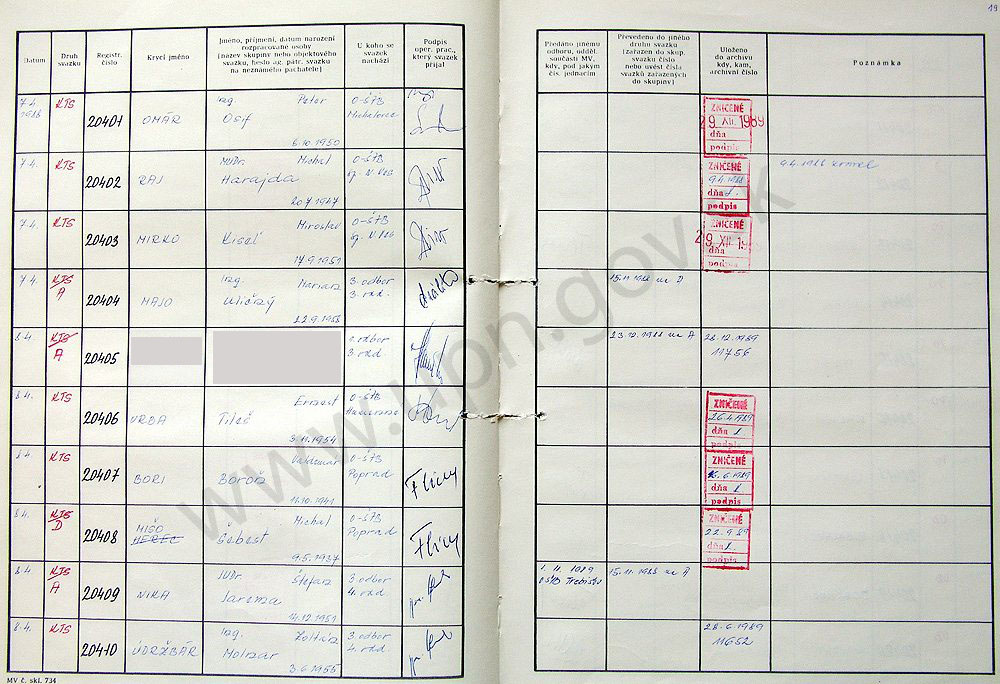 19
Datum
Druh
svazku
Registr.
číslo
Krycí jméno
Jméno, příjmení, datum narození
rozpracované osoby
[název skupiny nebo objektového
svazku, heslo ag. pátr. svazku
na neznámého pachatele]
U koho se
svazek
nachází
Podpis
oper. prac.,
který svazek
přijal
Předáno jinému
odboru, odděl.
součásti MV,
kdy, pod jakým
čís. jednacím
Převedeno do jiného
druhu svazků
[zařazen do skup.
svazku číslo
nebo uvést čísla
svazků zařazených
do skupiny]
Uloženo
do archivu
kdy, kam,
archivní číslo
Poznámka
7.4.
1988
KTS
20401
OMÁR
Ing. Peter
Osif
6.10.1950
O-ŠTB
Michalovce
ZNIČENÉ
29 XII. 1989
dňa
podpis
7.4.
KTS
20402
RAJ
MUDr. Michal
Harajda
20.7.1947
O-ŠTB
ZNIČENÉ
9.4.1988
dňa
podpis
7.4.
KTS
20403
MIRKO
Miroslav
Kiseľ
17.9.1951
O-ŠTB
ZNIČENÉ
29 XII. 19
dňa
podpis
7.4.
KTS
A
20404
MAJO
Ing. Marian
Uličný
22.9.1958
3. odbor
3. rád.
15.11.1988 na D
8.4.
KTS
A
20405
1. odbor
3. rád
23.12.1988 na A
28.12.1989
11756
8.4.
KTS
20406
VRBA
Ernest
Tileš
3.11.1954
O-ŠTB
Humenné
ZNIČENÉ
26.4.1989
dňa
podpis
8.4.
KTS
20407
BORI
Valdemar
Boroň
11.10.1941
O-ŠTB
Poprad
ZNIČENÉ
16.6.1989
dňa
podpis
8.4.
KTS
D
20408
MIŠO
HEREC
Michal
Šebest
9.5.1937
O-ŠTB
Poprad
ZNIČENÉ
22.9.89
dňa
podpis
8.4.
KTS
A
20409
NIKA
JUDr. Štefan
Jaroma
14.12.1951
3. odbor
4. rád.
1.11.1989
OŠTB Trebišov
15.11.1988 na A
8.4.
KTS
20410
ÚDRŽBÁR
Ing. Zoltán
Molnar
3.6.1955
3. odbor
4. rád.
28.6.1989
11652
MV č. skl. 734
www.upn.gov.sk